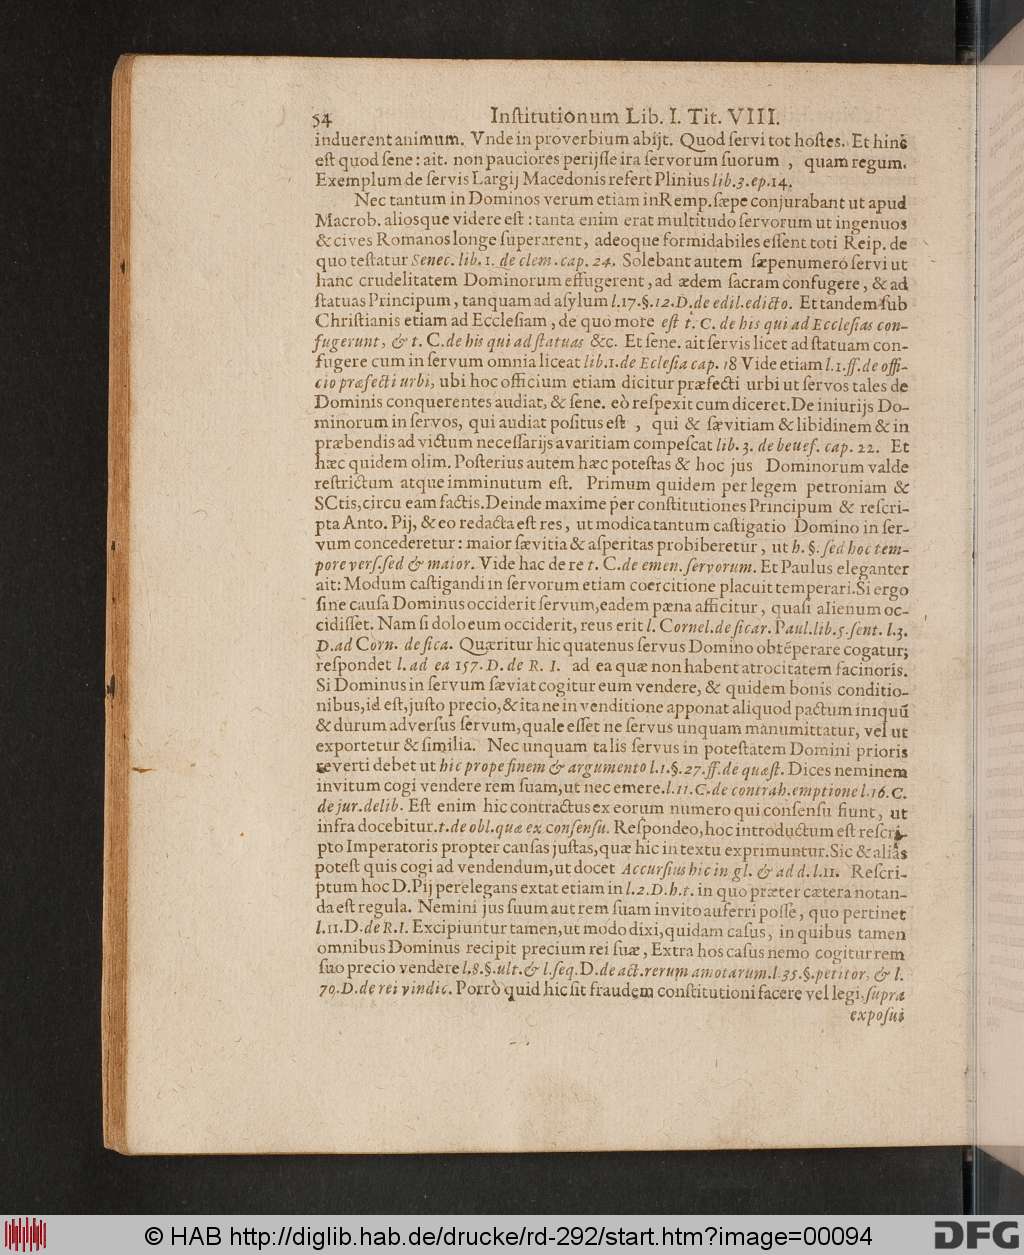 54 Inſtitutionum Lib. I. Tit. VIII.
induerent animum. Vnde in proverbium abijt. Quod ſervi tot hoſtes. Et hinc
eſt quod ſene: ait. non pauciores perijſſe ira ſervorum ſuorum , quam regum.
Exemplum de ſervis Largij Macedonis refert Plinius lib.3.ep.14.
Nec tantum in Dominos verum etiam in Remp. ſæpe conjurabant ut apud
Macrob. aliosque videre eſt : tanta enim erat multitudo ſervorum ut ingenuos
& cives Romanos longe ſuperarent, adeoque formidabiles eſſent toti Reip. de
quo teſtatur Senec. lib. 1. de clem. cap. 24. Solebant autem ſæpenumerò ſervi ut
hanc crudelitatem Dominorum effugerent, ad ædem ſacram confugere, & ad
ſtatuas Principum, tanquam ad aſylum l.17.§.12.D.de edil.edicto. Et tandem ſub
Chriſtianis etiam ad Eccleſiam, de quo more eſt t. C. de his qui ad Eccleſias con-
fugerunt, & t. C. de his qui ad ſtatuas &c. Et ſene. ait ſervis licet ad ſtatuam con-
fugere cum in ſervum omnia liceat lib.1.de Ecleſia cap. 18 Vide etiam l.1.ff.de offi-
cio præfecti urbi, ubi hoc officium etiam dicitur præfecti urbi ut ſervos tales de
Dominis conquerentes audiat, & ſene. eò reſpexit cum diceret. De iniurijs Do-
minorum in ſervos, qui audiat poſitus eſt , qui & ſævitiam & libidinem & in
præbendis ad victum neceſſarijs avaritiam compeſcat lib. 3. de beuef. cap. 22. Et
hæc quidem olim. Poſterius autem hæc poteſtas & hoc jus Dominorum valde
reſtrictum atque imminutum eſt. Primum quidem per legem petroniam &
SCtis, circu eam factis. Deinde maxime per conſtitutiones Principum & reſcri-
pta Anto. Pij, & eo redacta eſt res, ut modica tantum caſtigatio Domino in ſer-
vum concederetur: maior ſævitia & aſperitas probiberetur, ut h. §. ſed hoc tem-
pore verſ. ſed & maior. Vide hac de re t. C. de emen. ſervorum. Et Paulus eleganter
ait: Modum caſtigandi in ſervorum etiam coercitione placuit temperari. Si ergo
ſine cauſa Dominus occiderit ſervum, eadem pæna afficitur, quaſi alienum oc-
cidiſſet. Nam ſi dolo eum occiderit, reus erit l. Cornel. de ſicar. Paul. lib. 5. ſent. l.3.
D. ad Corn. de ſica. Quæritur hic quatenus ſervus Domino obtẽperare cogatur;
reſpondet l. ad ea 157. D. de R. I. ad ea quæ non habent atrocitatem facinoris.
Si Dominus in ſervum ſæviat cogitur eum vendere, & quidem bonis conditio-
nibus, id eſt, juſto precio, & ita ne in venditione apponat aliquod pactum iniquũ
& durum adverſus ſervum, quale eſſet ne ſervus unquam manumittatur, vel ut
exportetur & ſimilia. Nec unquam talis ſervus in poteſtatem Domini prioris
reverti debet ut hic prope finem & argumento l.1.§.27.ff.de quæſt. Dices neminem
invitum cogi vendere rem ſuam, ut nec emere. l.11.C.de contrah.emptione l.16.C.
de jur.delib. Eſt enim hic contractus ex eorum numero qui conſenſu fiunt, ut
infra docebitur. t. de obl. quæ ex conſenſu. Reſpondeo, hoc introductum eſt reſcri-
pto Imperatoris propter cauſas juſtas, quæ hic in textu exprimuntur. Sic & aliàs
poteſt quis cogi ad vendendum, ut docet Accurſius hic in gl. & ad d. l.11. Reſcri-
ptum hoc D. Pij perelegans extat etiam in l.2.D.h.t. in quo præter cætera notan-
da eſt regula. Nemini jus ſuum aut rem ſuam invito auferri poſſe, quo pertinet
l.11.D.de R.I. Excipiuntur tamen, ut modo dixi, quidam caſus, in quibus tamen
omnibus Dominus recipit precium rei ſuæ, Extra hos caſus nemo cogitur rem
ſuo precio vendere l.8.§.ult.& l.ſeq.D.de act.rerum amotarum.l.35.§.petitor, & l.
70.D.de rei vindic. Porrò quid hic ſit fraudem conſtitutioni facere vel legi, ſupra
expoſui
© HAB http://diglib.hab.de/drucke/rd-292/start.htm?image=00094
DFG